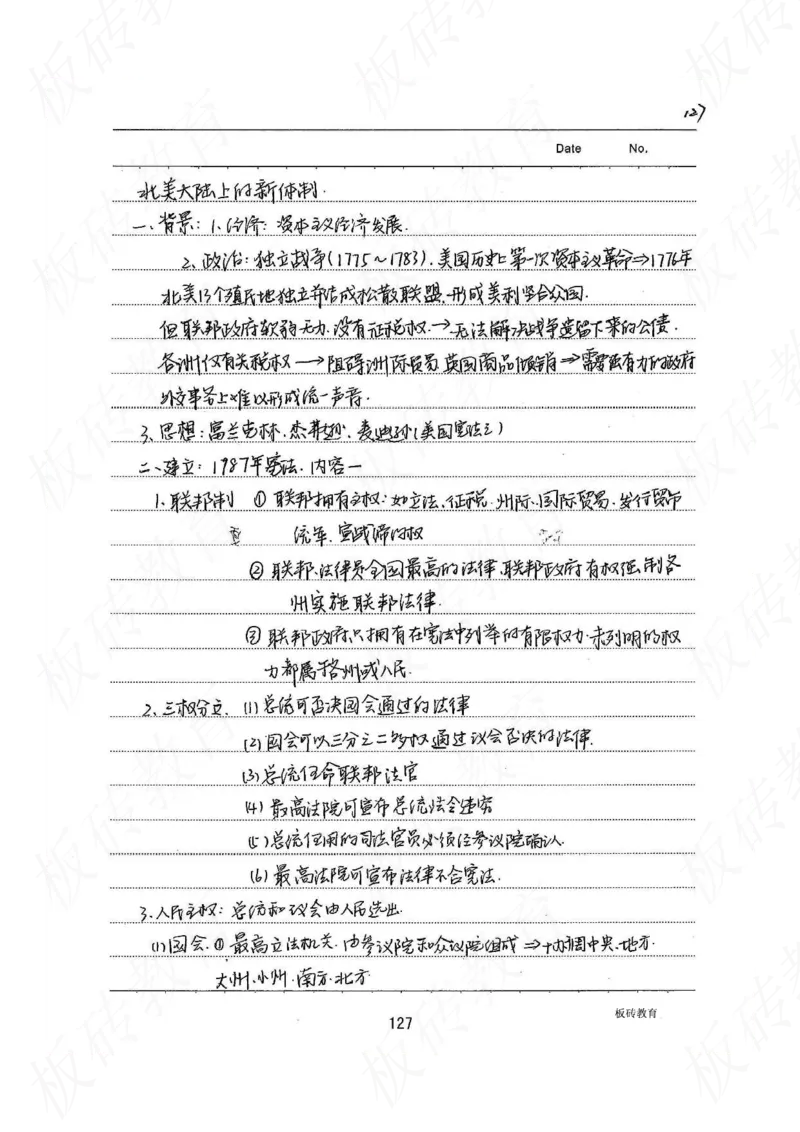 127
Date No.
北美大陆上的新体制.
一、背景: 1、经济: 资本主义经济发展.
2、政治: 独立战争(1775～1783). 美国历史上第一次资本主义革命⇒1776年
北美13个殖民地独立并结成松散联盟,形成美利坚合众国.
但联邦政府软弱无力,没有征税权.→无法解决战争遗留下来的公债.
各洲仅有关税权→阻碍洲际贸易 英国商品倾销⇒需要强有力的政府
外交事务上难以形成统一声音.
3、思想: 富兰克林、杰弗逊、麦迪逊(美国宪法之)
二、建立: 1987年宪法. 内容一
1、联邦制 ① 联邦拥有主权: 如立法、征税、州际、国际贸易、发行货币
统军、宣战缔约权
② 联邦法律是全国最高的法律,联邦政府有权强制各
州实施联邦法律.
③ 联邦政府只拥有在宪法中列举的有限权力,未列明的权
力都属于各州或人民.
2、三权分立. (1)总统可否决国会通过的法律
(2)国会可以三分之二多权通过议会否决的法律.
(3)总统任命联邦法官
(4)最高法院可宣布总统法令违宪
(5)总统任用的司法官员必须经参议院确认.
(6)最高法院可宣布法律不合宪法.
3、人民主权: 总统和议会由人民选出.
(1)国会.①最高立法机关.由参议院和众议院组成⇒协调中央、地方.
大州、小州.南方.北方
127
板砖教育